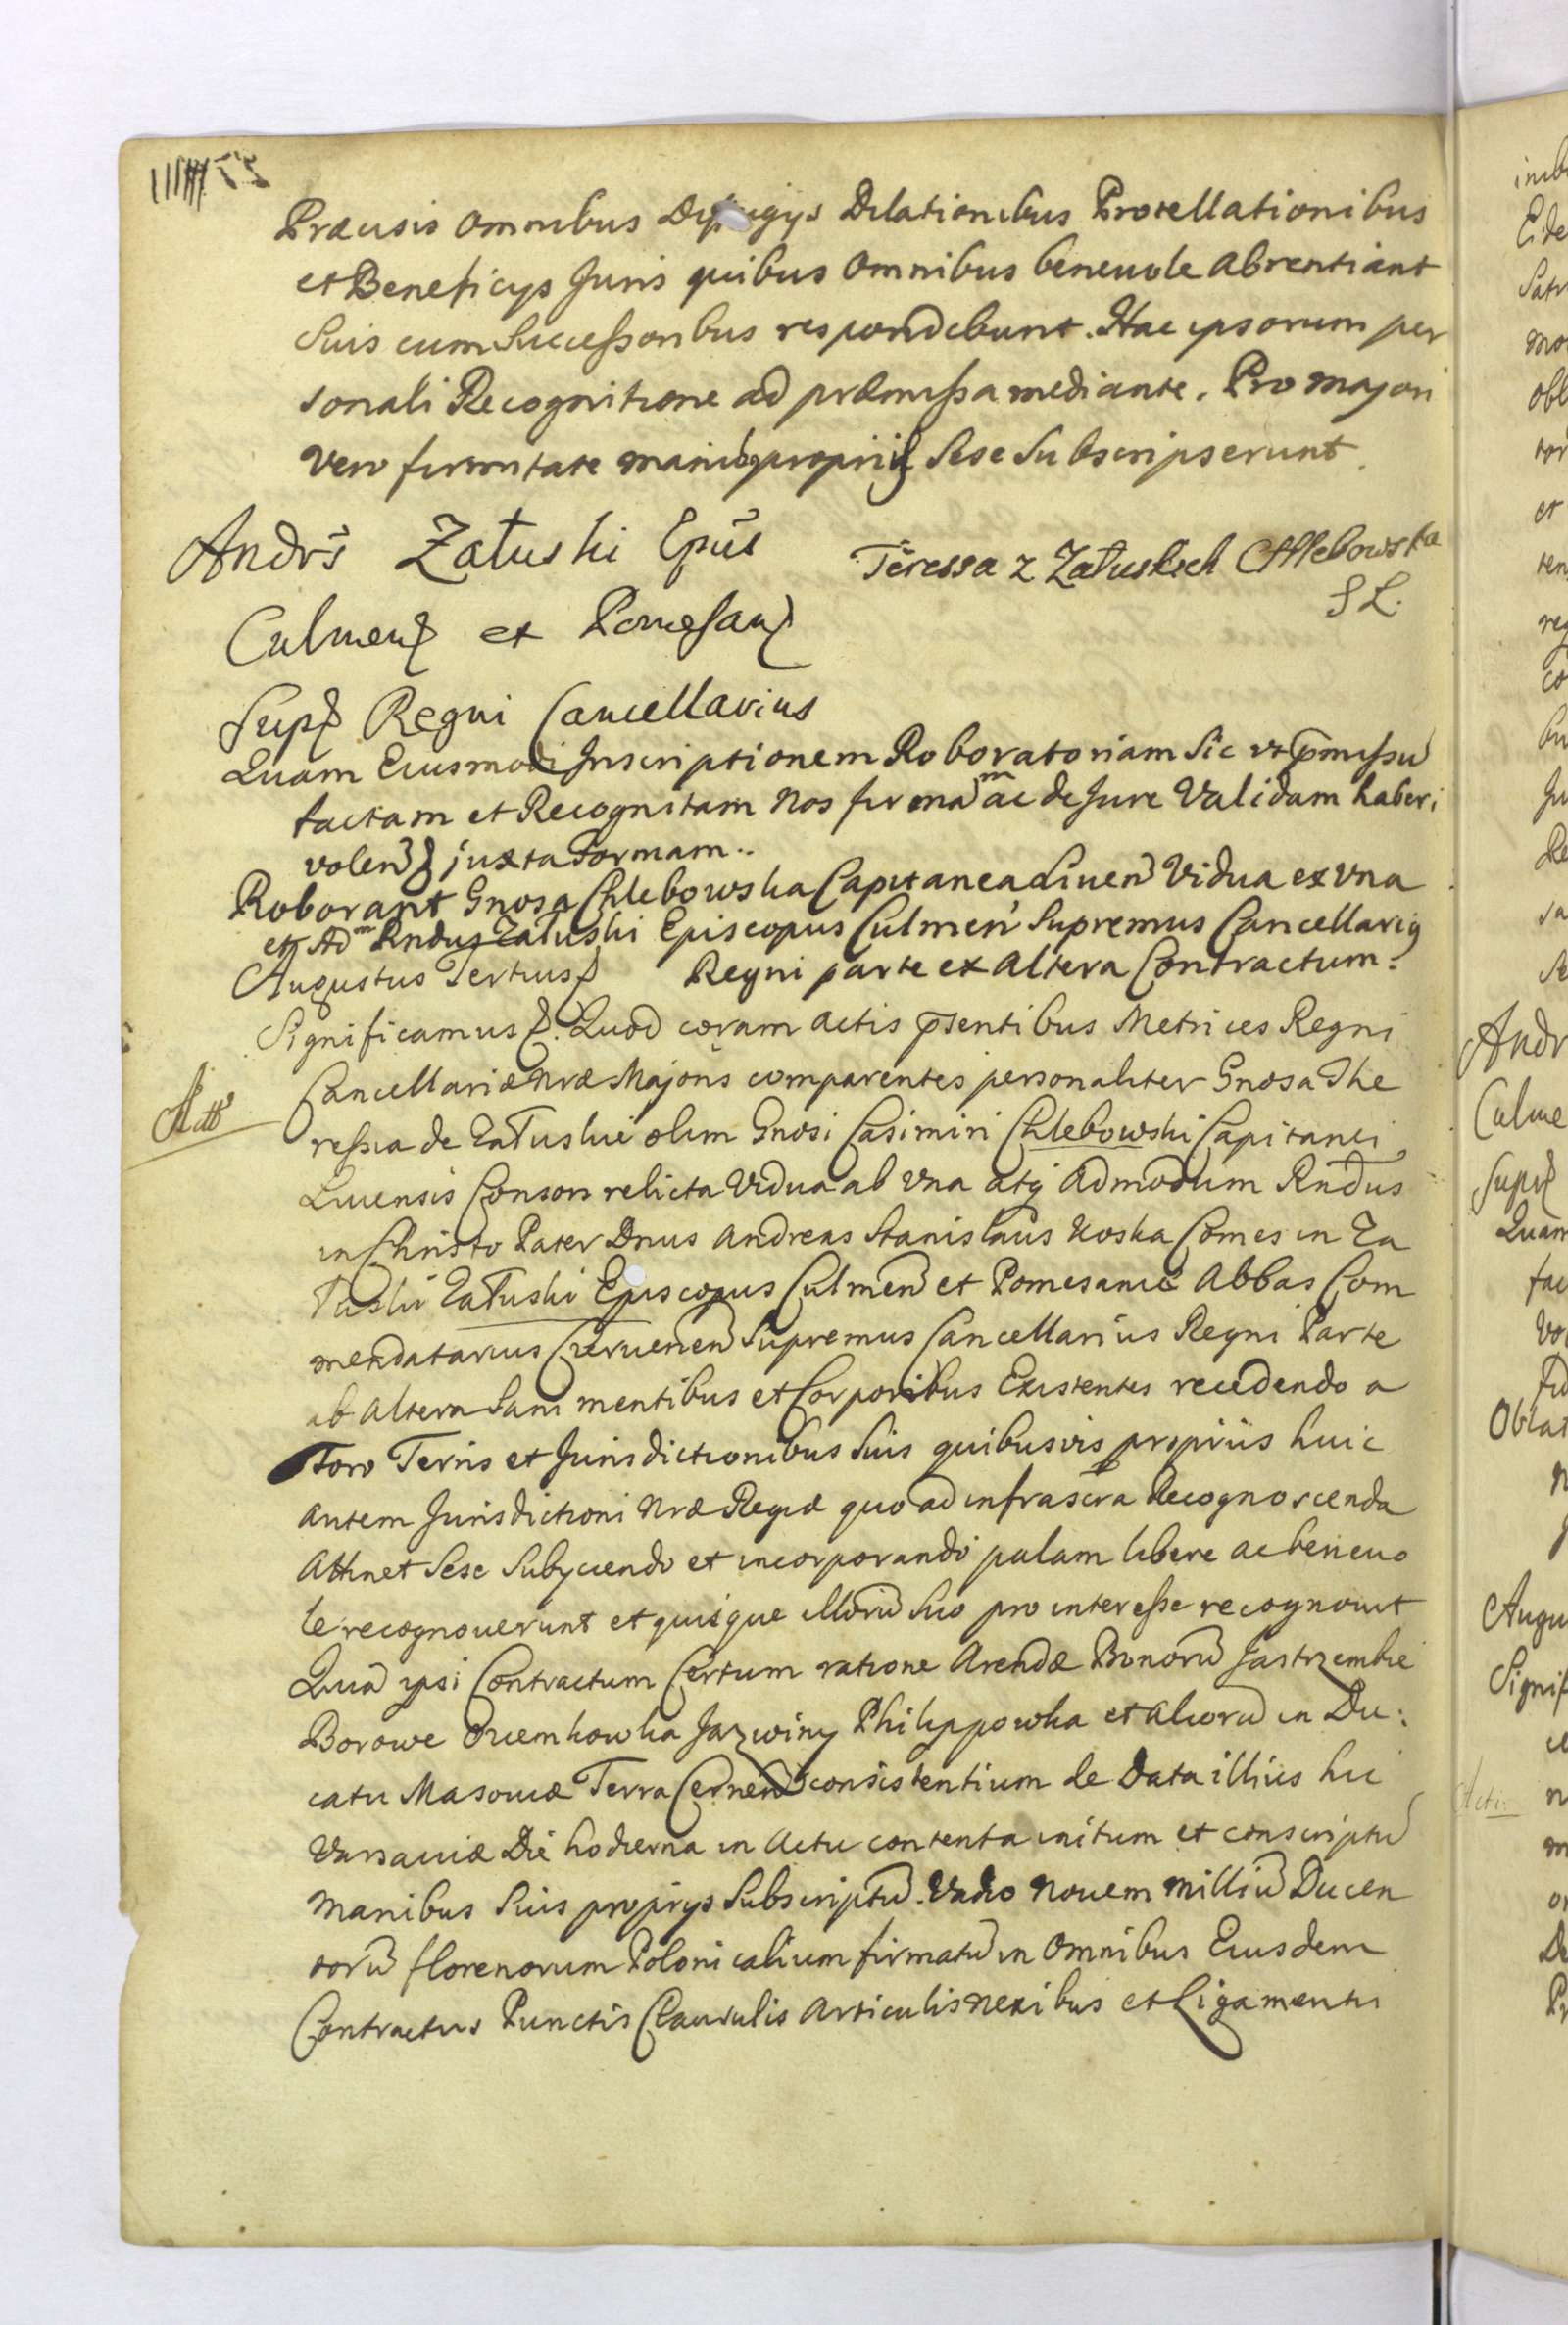 Præcisis omnibus Diffugijs Dilationibus Protellationibus
et Beneficijs Juris quibus omnibus beneuole abrentiant
Suis cum Successoribus respondebunt. Hac ipsorum per
sonali Recognitione ad præmissa mediante. Pro majori
vero firmitate manibq propriis sese Subscripserunt.
Andrs Załuski Epūs
Teressa z Załuskich Chlebowska
S L.
Culmens et Pomesans
Supr Regni Cancellarius
Quam Eiusmodi Inscriptionem Roboratoriam Sic vt p̄missū
factam et Recognitam Nos firmam ac de Jure Validam haberi
volen juxta Formam..
Roborant Gnosa Chlebowska Capitanea Liuen Vidua ex vna
et Adm Rndus Załuski Episcopus Culmen Supremus Cancellarig
Augustus Tertius
Regni parte ex altera Contractum.
Significamus. Quod coram actis p̄sentibus Metrices Regni
Cancellariæ Nræ Majoris comparentes personaliter Gnosa The
ressia de Załuskie olim Gnosi Casimiri Chlebowski Capitanei
Liuensis Consors relicta Vidua ab vna atq admodum Rndus
in Christo Pater Dnus Andreas Stanislaus Kostka Comes in Za
łuski Załuski Episcopus Culmen et Pomesaniæ Abbas Com
mendatarius Czeruenen Supremus Cancellarius Regni Parte
ab altera Sani mentibus et Corporibus Existentes recedendo a
Foro Terris et Jurisdictionibus Suis quibusvis propriis huic
autem Jurisdictioni Nræ Regiæ quo ad infrascra Recognoscenda
attinet Sese Subyciendo et incorporando palam libere ac beneuo
le recognouerunt et quisque illorū suo pro interesse recognouit
Quia ipsi Contractum Certum ratione Arendæ Bonorū Jastrzembie
Borowe Jazwiny Philippowka et aliorū in Du:
catu Masouiæ Terra Cernen consistentium de Data illius hic
Varsauiæ Die hodierna in Actu contenta initum et conscriptū
manibus Suis proprijs Subscriptū. Vadio Nouem milliū Ducen
torū florenorum Polonicalium firmatū in Omnibus Eiusdem
Contractus Punctis Clausulis Articulis Nexibus et Ligamentis